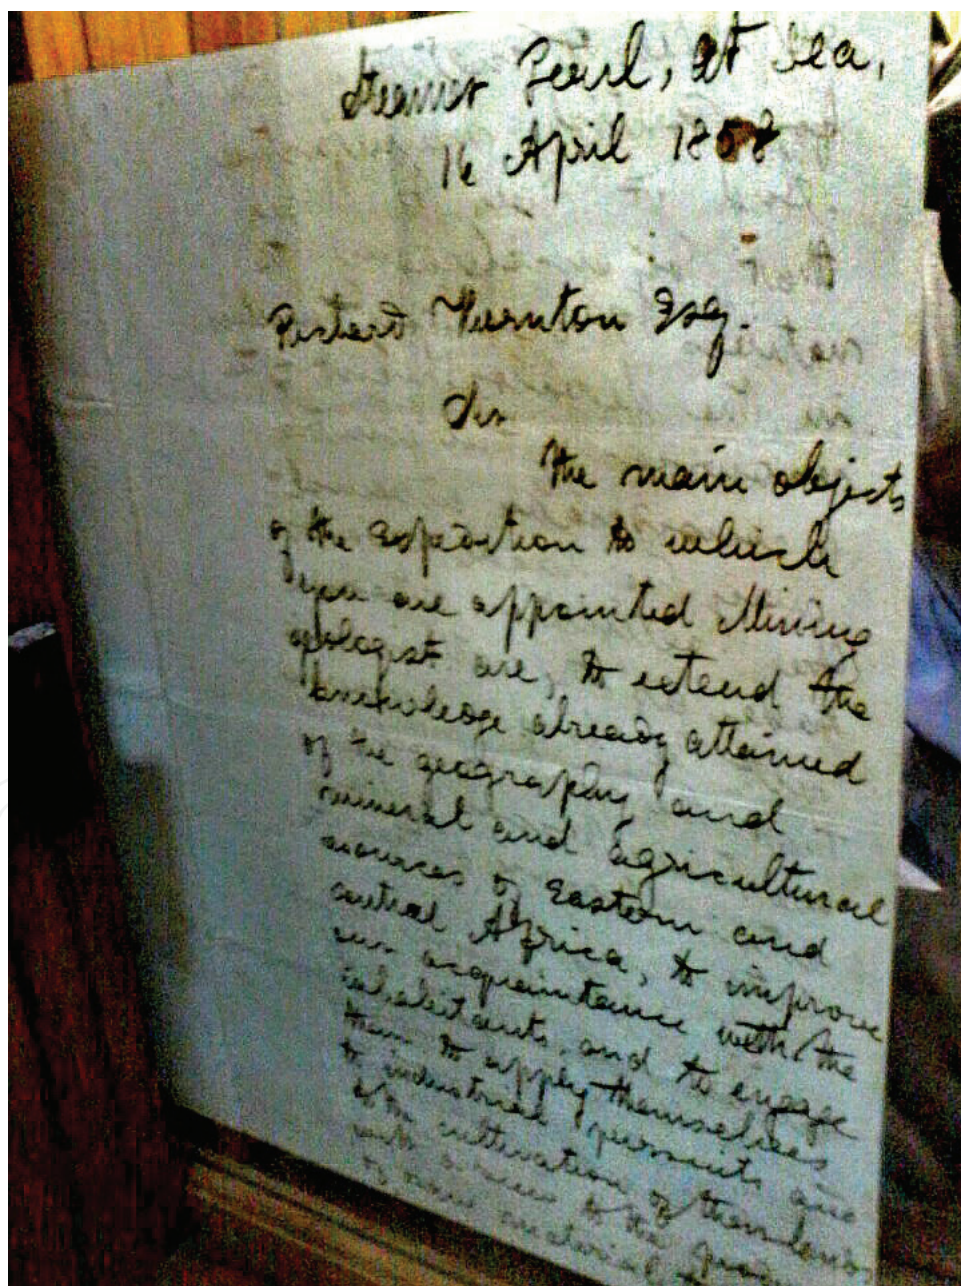 Steamer Pearl, at sea,
16 April 1858
Richard Thornton Esq.
Sir
The main objects
of the expedition to which
you are appointed Mining
geologist are, to extend the
knowledge already attained
of the geography and
mineral and Agricultural
resources of Eastern and
central Africa, to improve
our acquaintance with the
inhabitants, and to engage
them to apply themselves
to industrial pursuits and
to the cultivation of their lands
with a view to the
of raw material